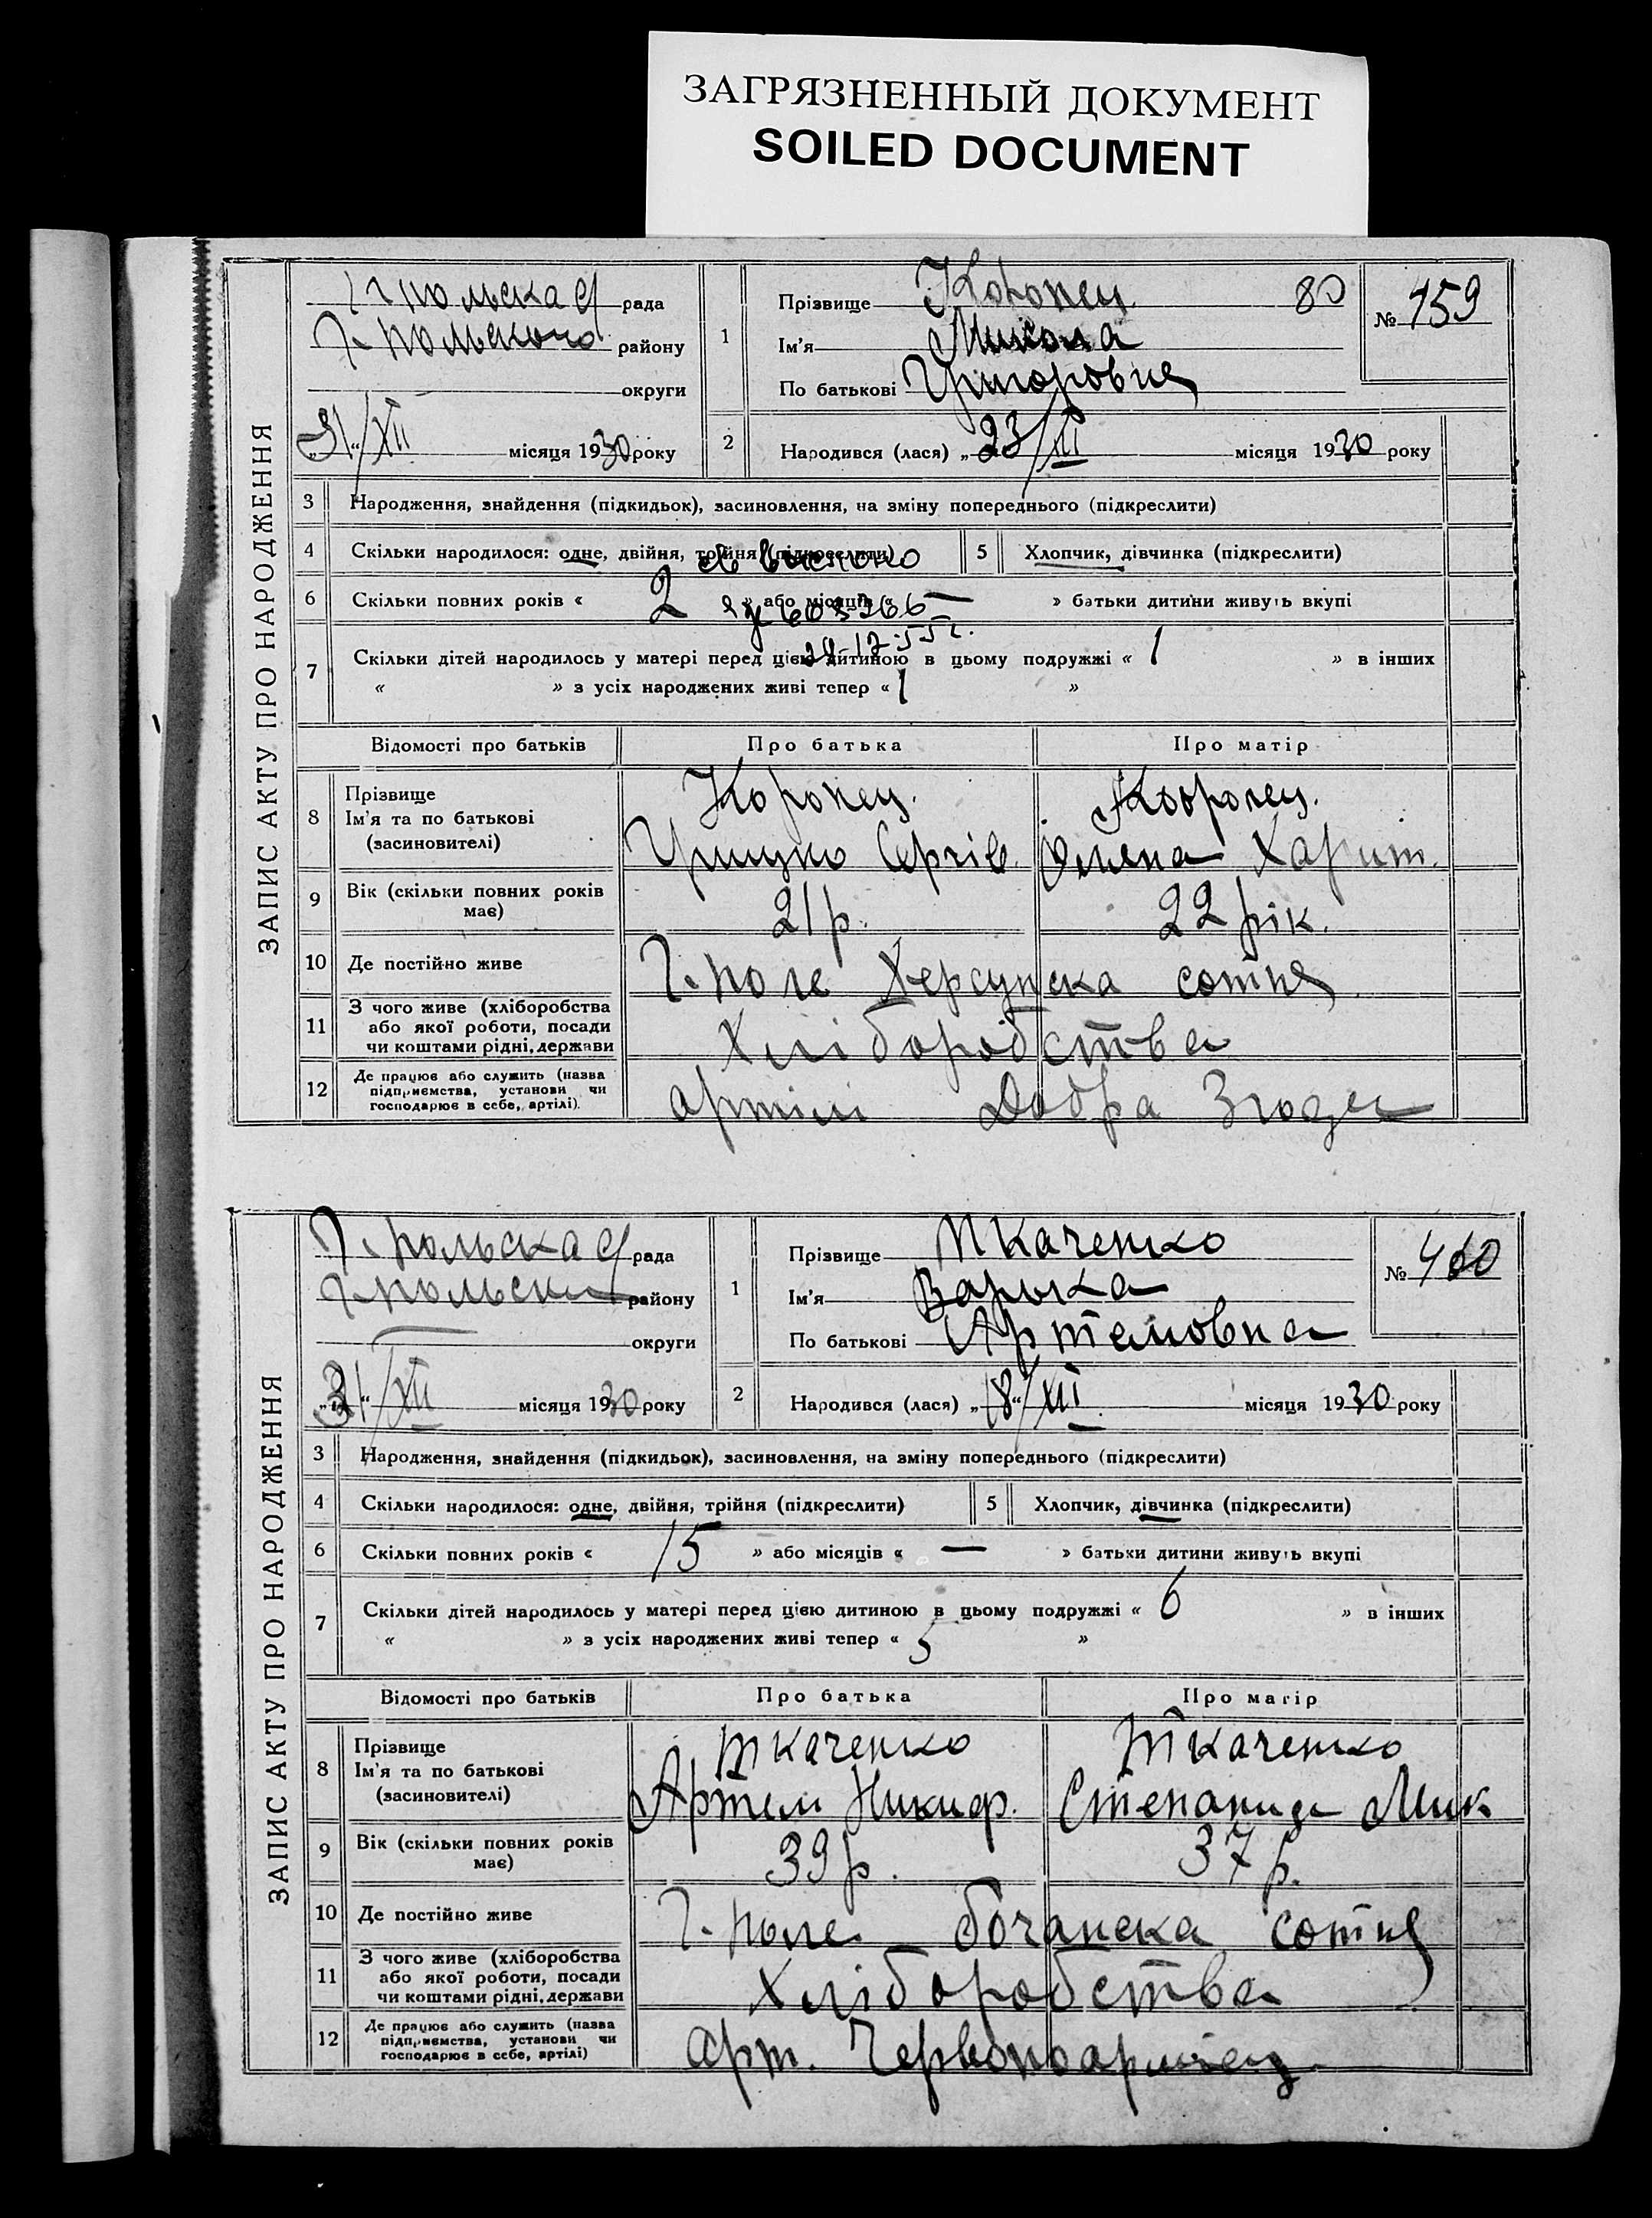 ЗАГРЯЗНЕННЫЙ ДОКУМЕНТ
SOILED DOCUMENT
ЗАПИС АКТУ ПРО НАРОДЖЕННЯ
Г. польска рада
Г. польского району
округи
„31“/XII місяця 1930 року
1 Прізвище Коропец 80
Ім'я Микола
По батькові Григоровня
№ 459
2 Народився (лася) „23/XII місяця 1930 року
3 Народження, знайдення (підкидьок), засиновлення, на зміну попереднього (підкреслити)
4 Скільки народилося: одне, двійня, трійня (підкреслити)
5 Хлопчик, дівчинка (підкреслити)
6 Скільки повних років « 2 » або місяців « — » батьки дитини живуть вкупі
7 Скільки дітей народилось у матері перед цією дитиною в цьому подружжі « 1 » в інших
« » з усіх народжених живі тепер « 1 »
Відомості про батьків Про батька Про матір
8 Прізвище Ім'я та по батькові (засиновителі)
Коропец. Коропец.
Грицко Сергіів. Олена Харит.
9 Вік (скільки повних років має) 21 р. 22 рік.
10 Де постійно живе Г. поле Херсунска сотня
11 З чого живе (хліборобства або якої роботи, посади чи коштами рідні, держави Хліборобства
12 Де працює або служить (назва підприємства, установи чи господарює в себе, артілі) артілі Добра Згода
ЗАПИС АКТУ ПРО НАРОДЖЕННЯ
Г. польска рада
Г. польски району
округи
„31“/XII місяця 1930 року
1 Прізвище Ткаченко
Ім'я Варька
По батькові Артемовна
№ 460
2 Народився (лася) „18“/XII місяця 1930 року
3 Народження, знайдення (підкидьок), засиновлення, на зміну попереднього (підкреслити)
4 Скільки народилося: одне, двійня, трійня (підкреслити)
5 Хлопчик, дівчинка (підкреслити)
6 Скільки повних років « 15 » або місяців « — » батьки дитини живуть вкупі
7 Скільки дітей народилось у матері перед цією дитиною в цьому подружжі « 6 » в інших
« » з усіх народжених живі тепер « 5 »
Відомості про батьків Про батька Про матір
8 Прізвище Ім'я та по батькові (засиновителі)
Ткаченко Ткаченко
Артем Никиф. Степанида Мик
9 Вік (скільки повних років має) 39 р. 37 р.
10 Де постійно живе Г. поле бочанска сотня
11 З чого живе (хліборобства або якої роботи, посади чи коштами рідні, держави Хліборобства
12 Де працює або служить (назва підприємства, установи чи господарює в себе, артілі) арт. Червоноармієц.